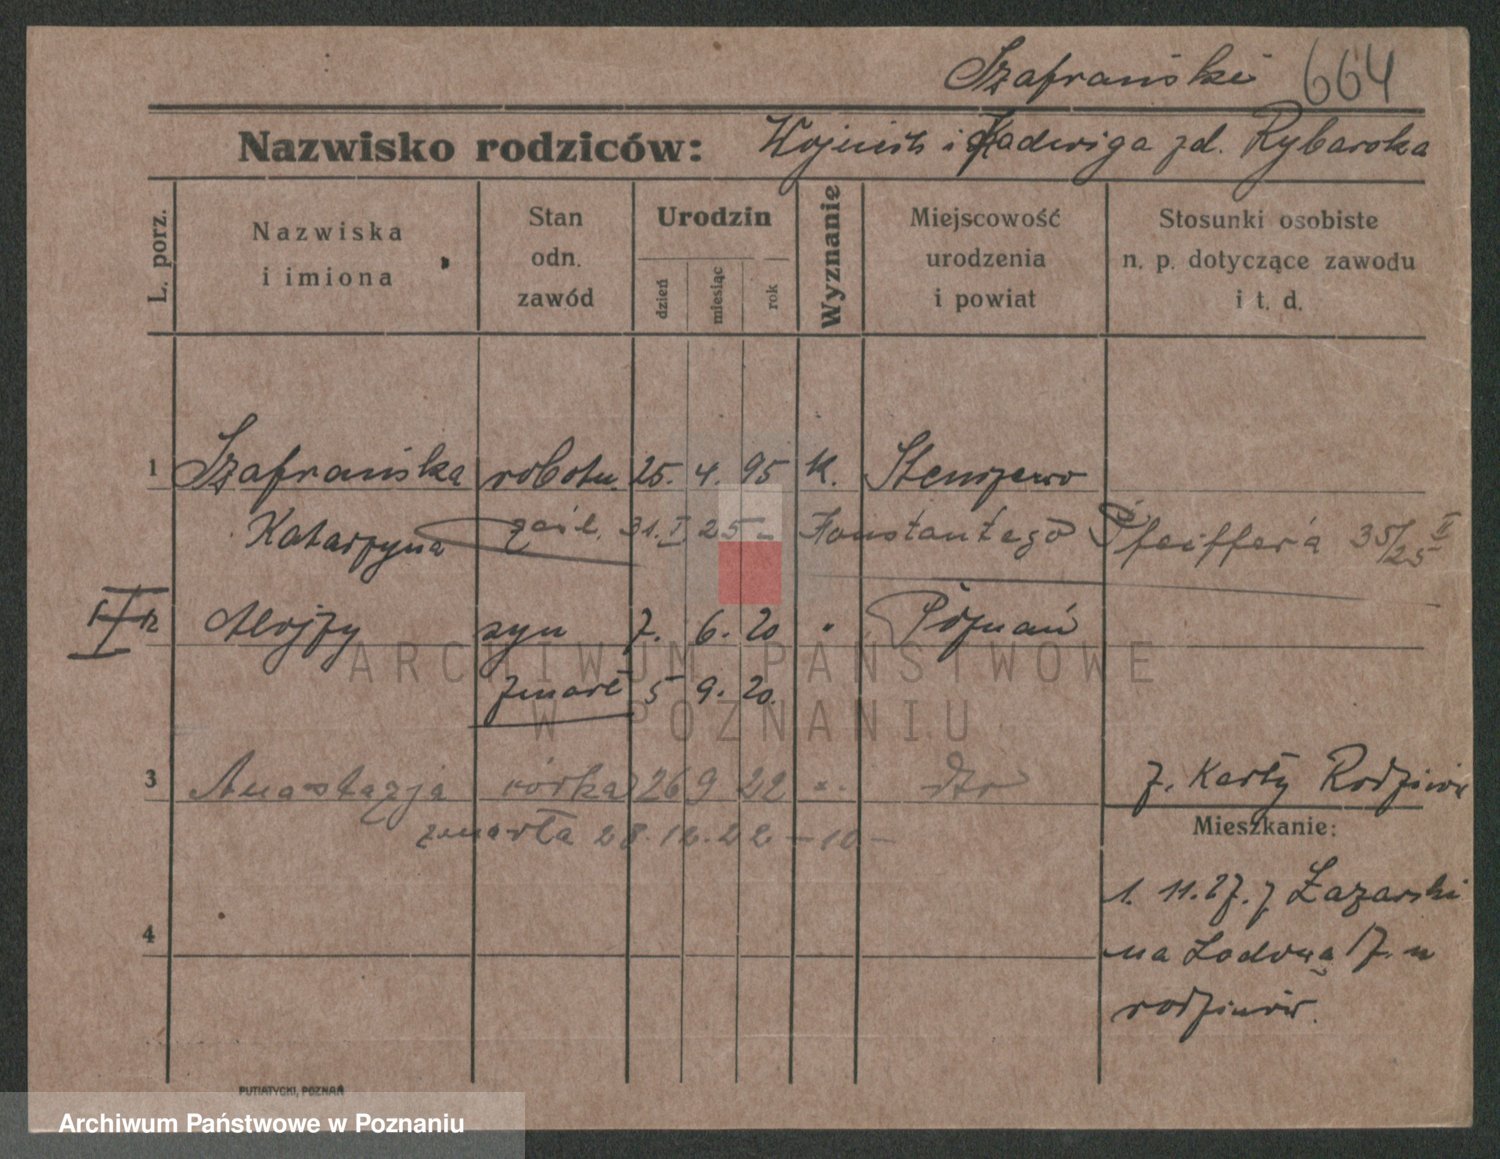 Szafrański 664
Nazwisko rodziców: Wojciech i Jadwiga zd. Rybarska
L. porz.
Nazwiska
i imiona
Stan
odn.
zawód
Urodzin
dzień
miesiąc
rok
Wyznanie
Miejscowość
urodzenia
i powiat
Stosunki osobiste
n. p. dotyczące zawodu
i t. d.
1 Szafrańska robotn. 25. 4. 95 k. Stenszewo
Katarzyna zaśl. 31. I 25 - Konstantego Pfeiffera 35/25 II
Alojzy syn 7. 6. 20 " Poznań
zmarł 5 9. 20.
ARCHIWUM PAŃSTWOWE
W POZNANIU
3 Anastazja córka 26 9 22 " dto z. Karty Rodziców
zmarła 28.12.22 -10-
Mieszkanie:
1. 11.27. z Łazarski
4
na Łodową 17. u
rodziców.
PUTIATYCKI, POZNAŃ
Archiwum Państwowe w Poznaniu